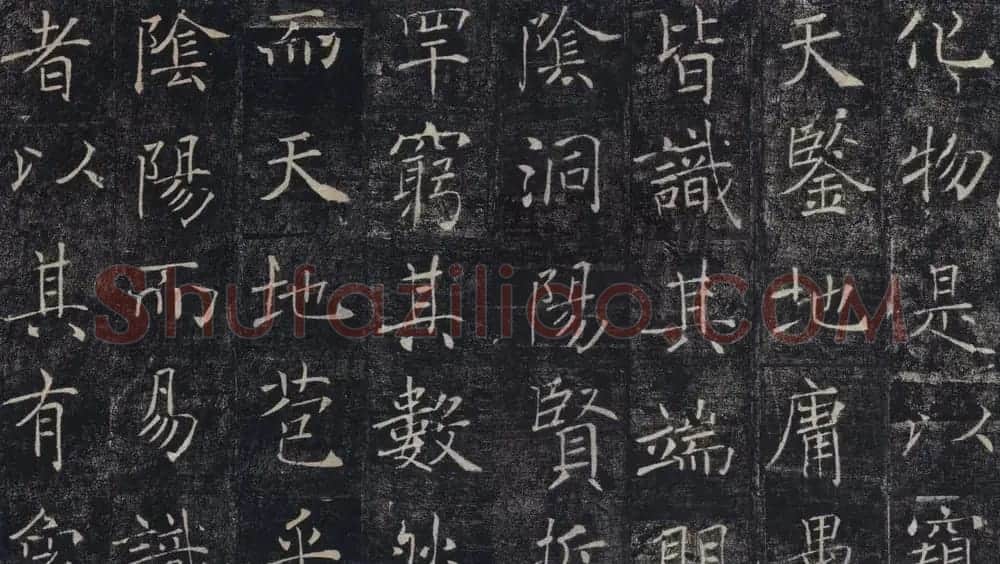 化物是以窺
天鑒地庸愚
皆識其端明
陰洞陽賢哲
罕窮其數然
而天地苞乎
陰陽而易識
者以其有象
Shufaziliao.COM